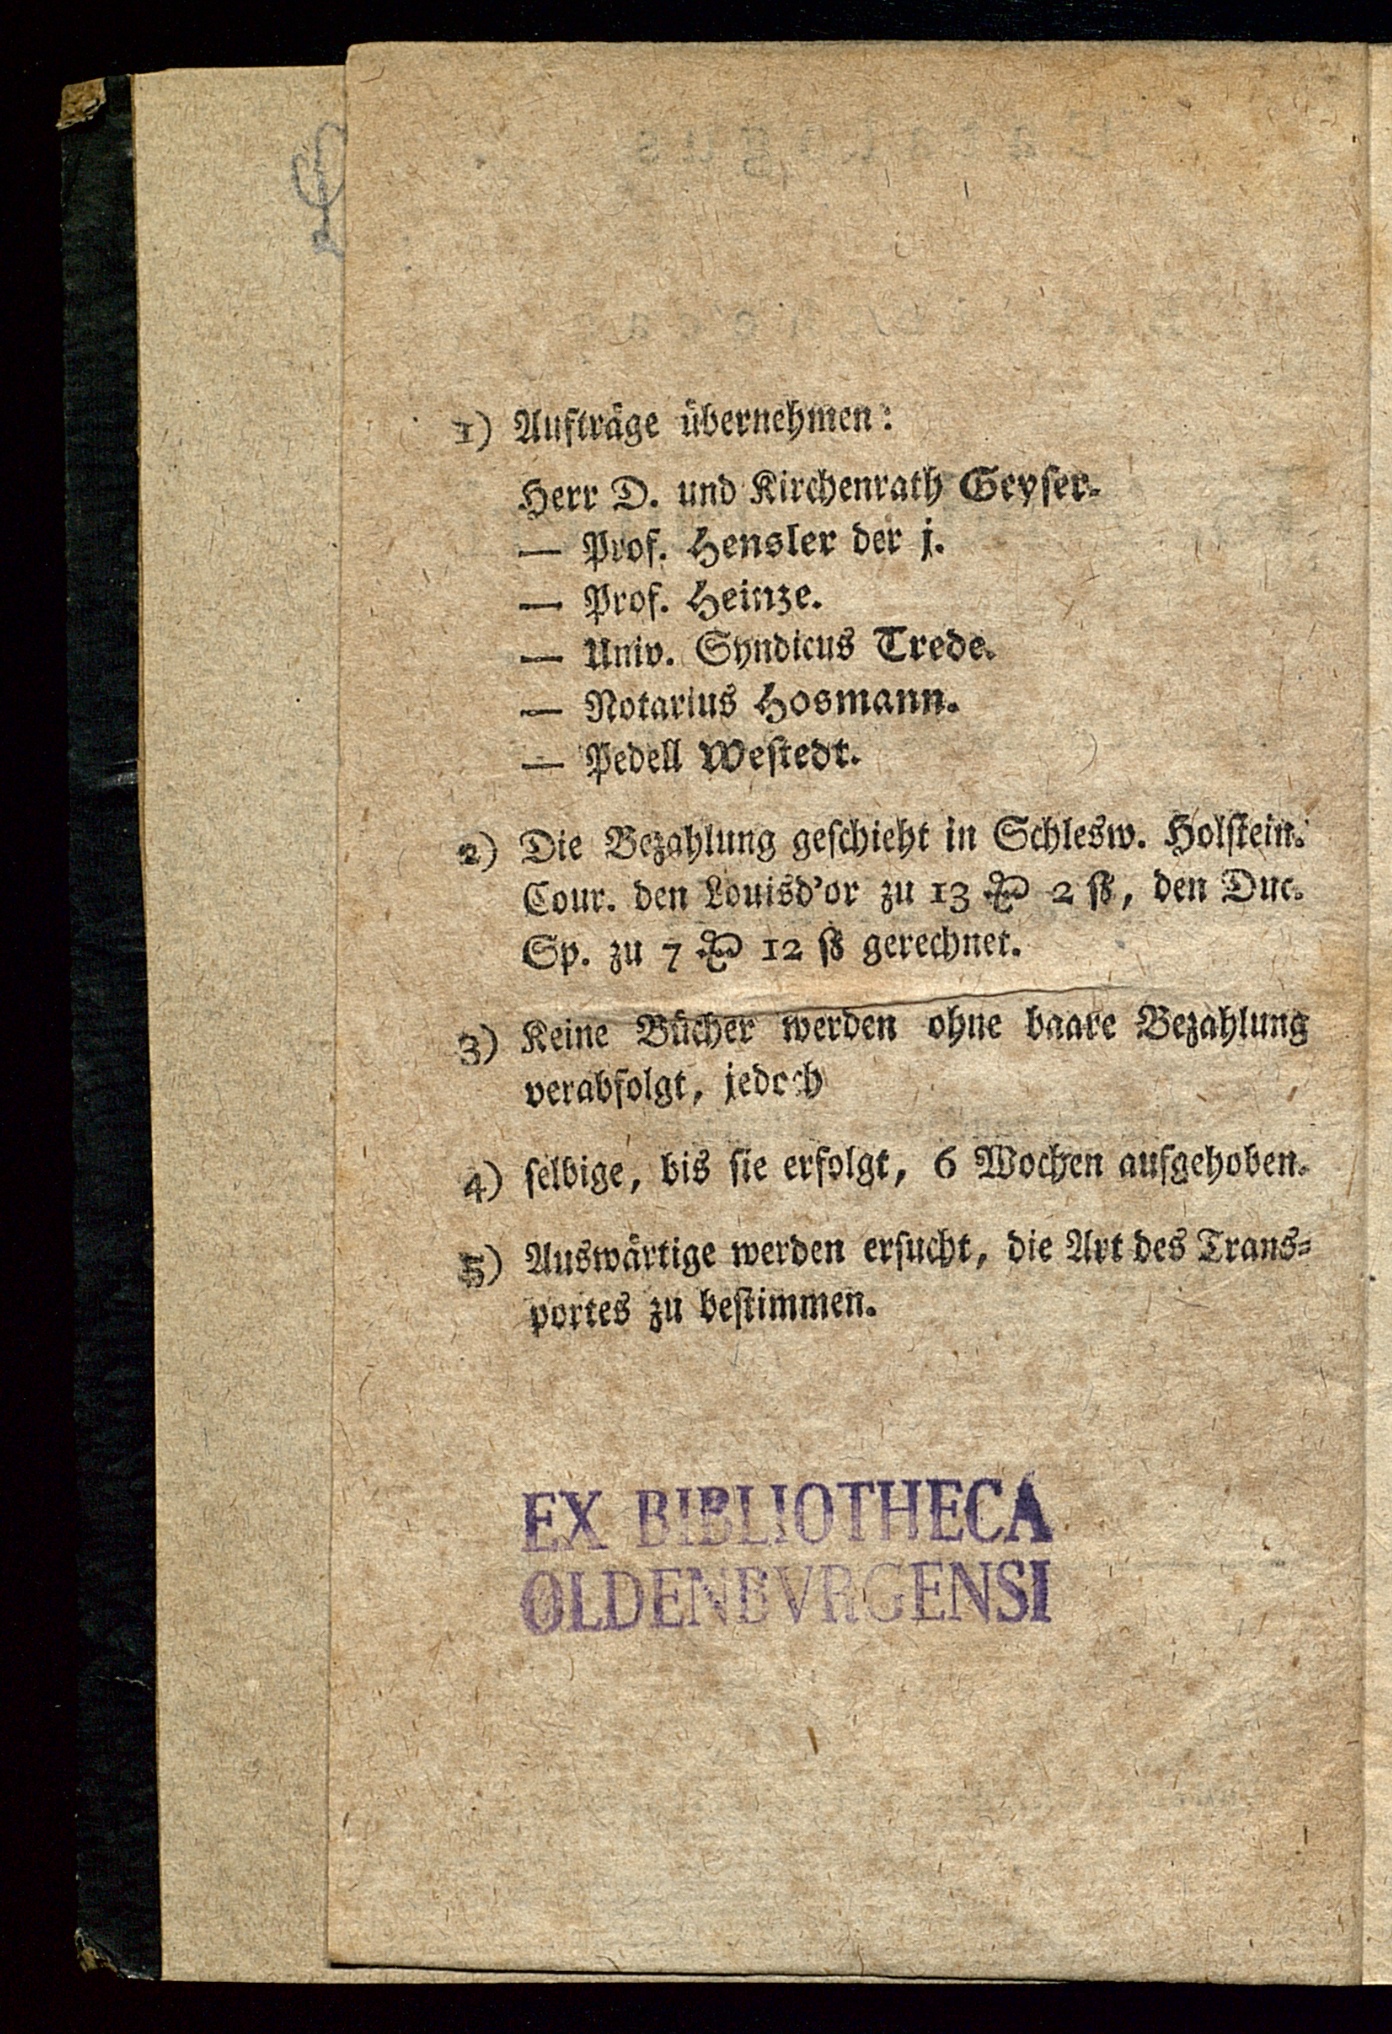 1) Aufträge übernehmen:
Herr D. und Kirchenrath Geyser.
— Prof. Hensler der j.
— Prof. Heinze.
— Univ. Syndicus Trede.
— Notarius Hosmann.
— Pedell Westedt.
2) Die Bezahlung geschieht in Schlesw. Holstein.
Cour. den Louisd'or zu 13 ₰ 2 ß, den Duc.
Sp. zu 7 ₰ 12 ß gerechnet.
3) Keine Bücher werden ohne baare Bezahlung
verabfolgt, jedoch
4) selbige, bis sie erfolgt, 6 Wochen aufgehoben.
5) Auswärtige werden ersucht, die Art des Trans=
portes zu bestimmen.
EX BIBLIOTHECA
OLDENBVRGENSI